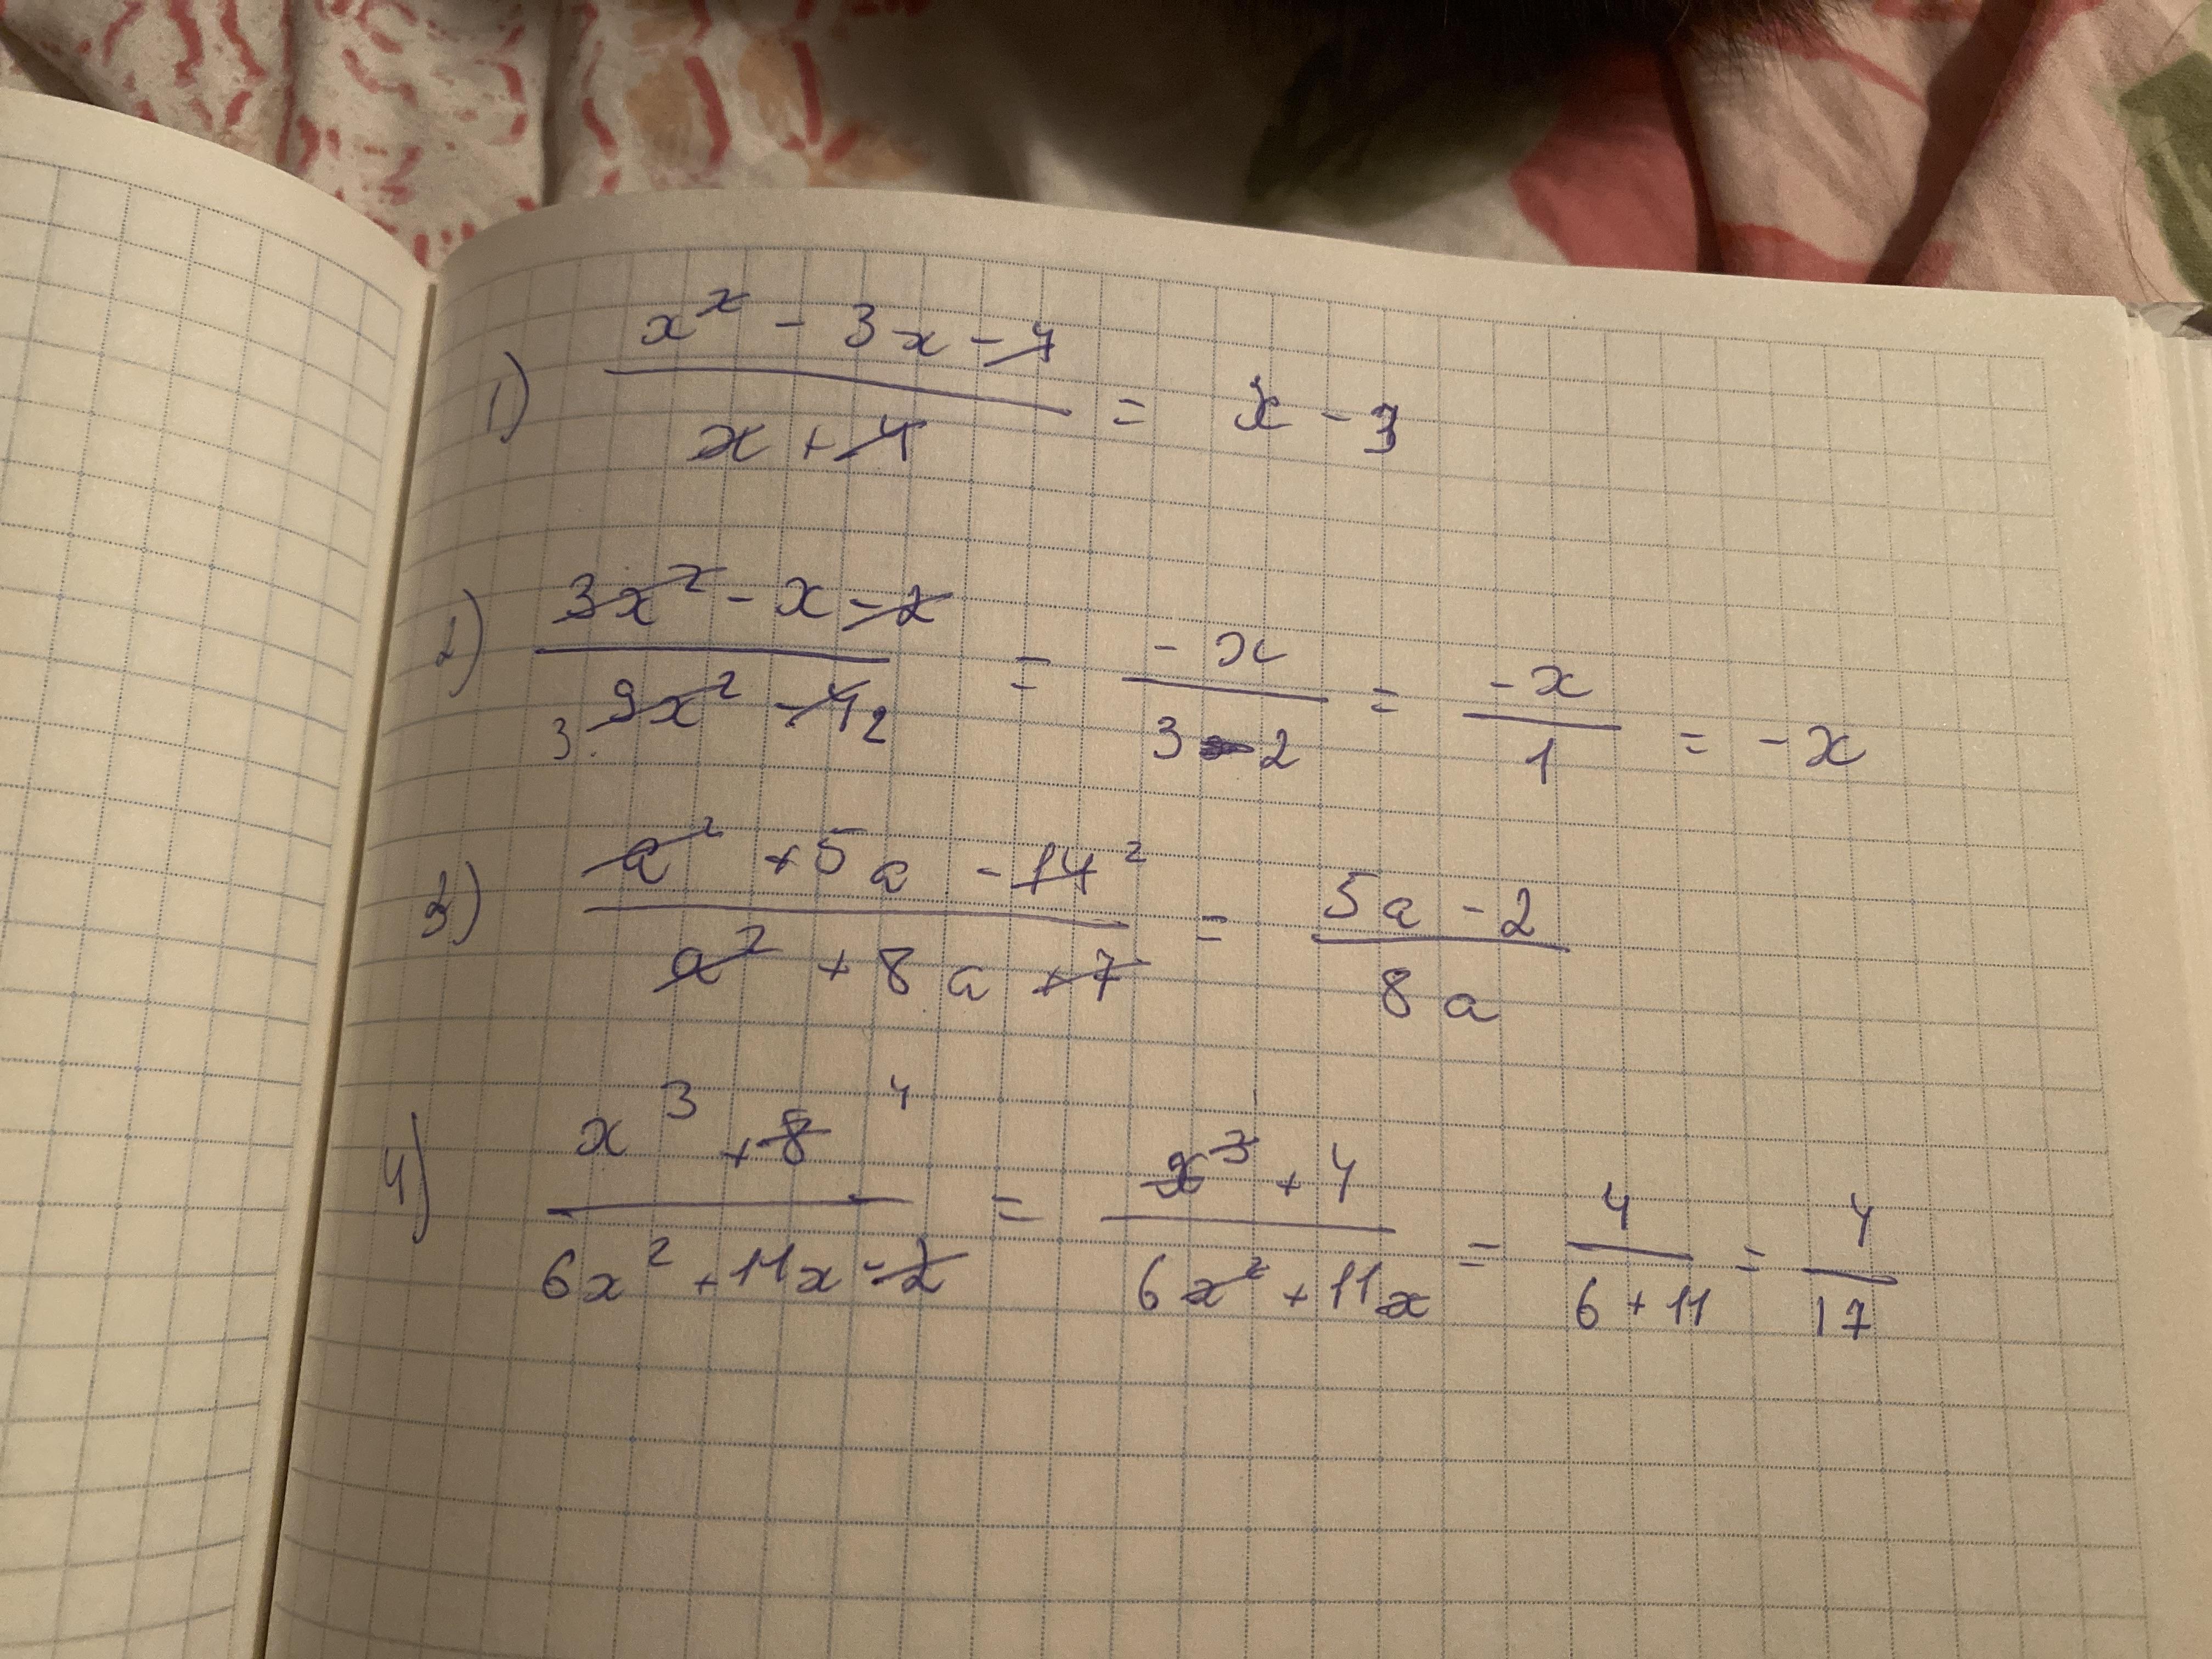 1) (x² - 3x - 4)/(x + 4) = x - 3
2) (3x² - x - 2)/(3 9x² - 4 2) = (-x)/(3 - 2) = (-x)/1 = -x
3) (a² + 5a - 14 ²)/(a² + 8a + 7) = (5a - 2)/(8a)
4) (x³ + 8 ⁴)/(6x² + 11x - 2) = (x³ + 4)/(6x² + 11x) = 4/(6 + 11) = 4/17